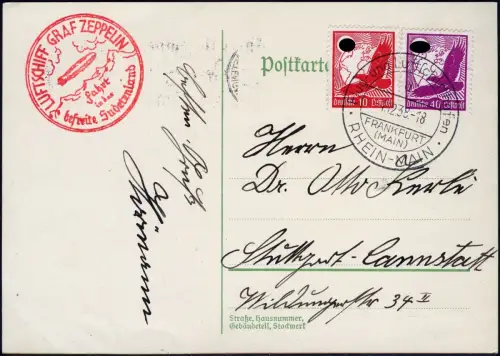 LUFTSCHIFF GRAF ZEPPELIN
Fahrt
in das
befreite Sudetenland
Postkarte
Deutsche 10 Reich
Deutsche 40
38-18
FRANKFURT
(MAIN)
RHEIN-MAIN
Herrn
Dr. Otto Kerle
Stuttgart-Cannstatt
Wildungerstr 34 II
Straße, Hausnummer,
Gebäudeteil, Stockwerk
Hermann